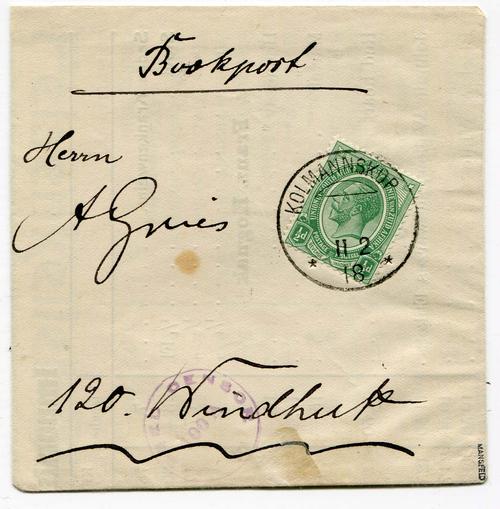 Bookpost
Herrn
A Gries
KOLMANNSKOP
½d ½d
11 2
18
120. Windhuk
MANSFELD